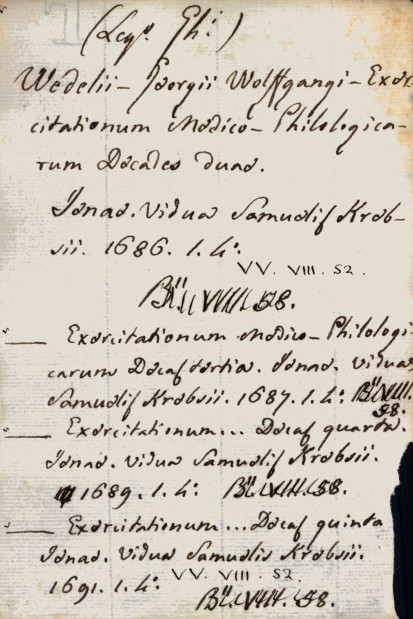 (Legt. Gh:)
Wedelii - Georgii Wolffgangi - Exer-
citationum Medico - Philologica-
rum Decades duae.
Ienae. Vidua Samuelis Kreb-
sii. 1686. 1. 4°:
VV. VIII. 52.
— Exercitationum Medico - Philologi-
carum Decas tertia. Ienae. Vidua
Samuelis Krebsii. 1687. 1. 4°:
58.
— Exercitationum... Decas quarta.
Ienae. Vidua Samuelis Krebsii.
1689. 1. 4°: 58.
— Exercitationum... Decas quinta
Ienae. Vidua Samuelis Krebsii.
1691. 1. 4°:
VV. VIII. 52.
58.